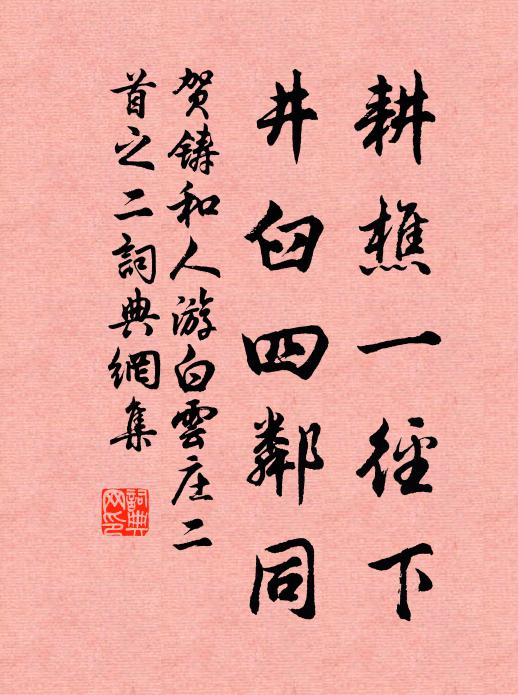 耕樵一径下
井臼四鄰同
贺鑄和人游白雲庄二
首之二詞典網集
詞典
网印